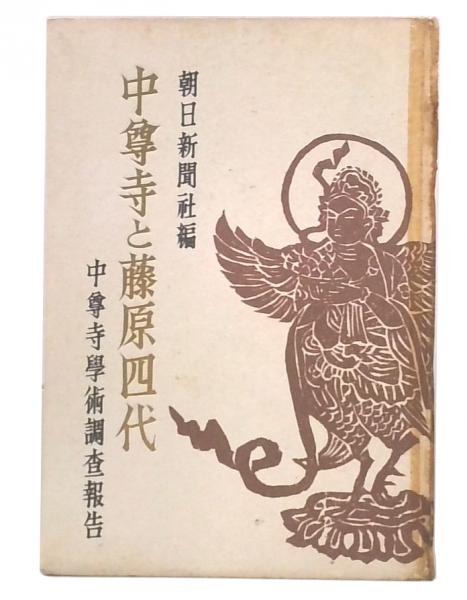 朝日新聞社編
中尊寺と藤原四代
中尊寺學術調査報告